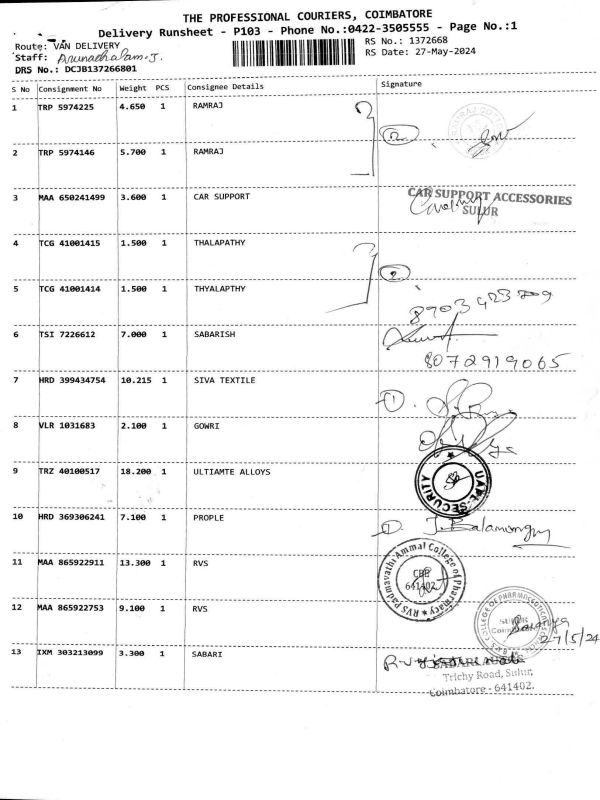 THE PROFESSIONAL COURIERS, COIMBATORE
Delivery Runsheet - P103 - Phone No.:0422-3505555 - Page No.:1
Route: VAN DELIVERY
RS No.: 1372668
Staff: Arunachalam.J.
RS Date: 27-May-2024
DRS No.: DCJB137266801
S No Consignment No Weight PCS Consignee Details Signature
1 TRP 5974225 4.650 1 RAMRAJ
2 TRP 5974146 5.700 1 RAMRAJ
3 MAA 650241499 3.600 1 CAR SUPPORT
CAR SUPPORT ACCESSORIES
SULUR
4 TCG 41001415 1.500 1 THALAPATHY
5 TCG 41001414 1.500 1 THYALAPTHY
6 TSI 7226612 7.000 1 SABARISH
8072919065
7 HRD 399434754 10.215 1 SIVA TEXTILE
8 VLR 1031683 2.100 1 GOWRI
9 TRZ 40100517 18.200 1 ULTIAMTE ALLOYS
UAPL-SECURITY
10 HRD 369306241 7.100 1 PROPLE
11 MAA 865922911 13.300 1 RVS
RVS Padmavathi Ammal College of Pharmacy
CBE
641402
12 MAA 865922753 9.100 1 RVS
COLLEGE OF PHARMACEUTICAL
SULUR
Coimbatore
27/5/24
13 IXM 303213099 3.300 1 SABARI
Trichy Road, Sulur,
Coimbatore - 641402.